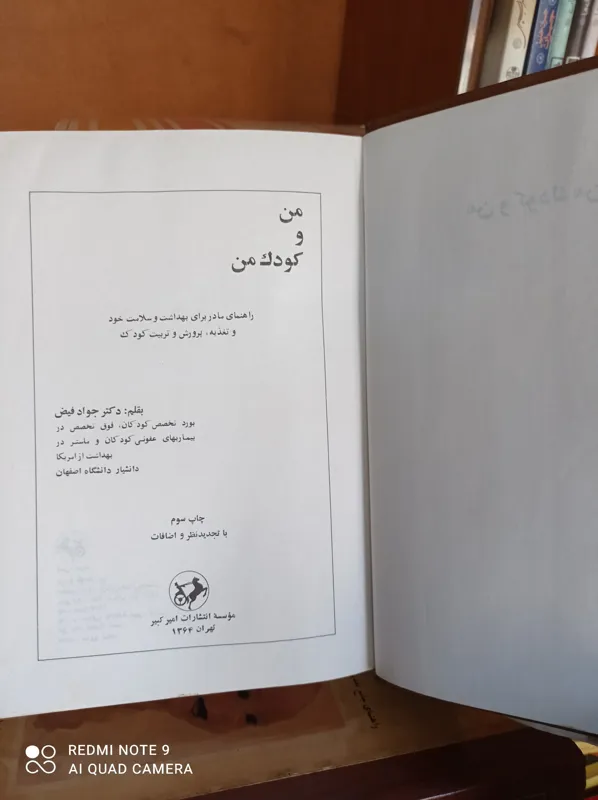 من
و
كودك من
راهنمای مادر برای بهداشت و سلامت خود
و تغذیه، پرورش و تربیت كودك
بقلم: دكتر جواد فیض
بورد تخصص كودكان، فوق تخصص در
بیماریهای عفونی كودكان و ماستر در
بهداشت از امریكا
دانشیار دانشگاه اصفهان
چاپ سوم
با تجدیدنظر و اضافات
مؤسسهٔ انتشارات امیركبیر
تهران ۱۳۶۴
من و كودك من
راهنمای
REDMI NOTE 9
AI QUAD CAMERA